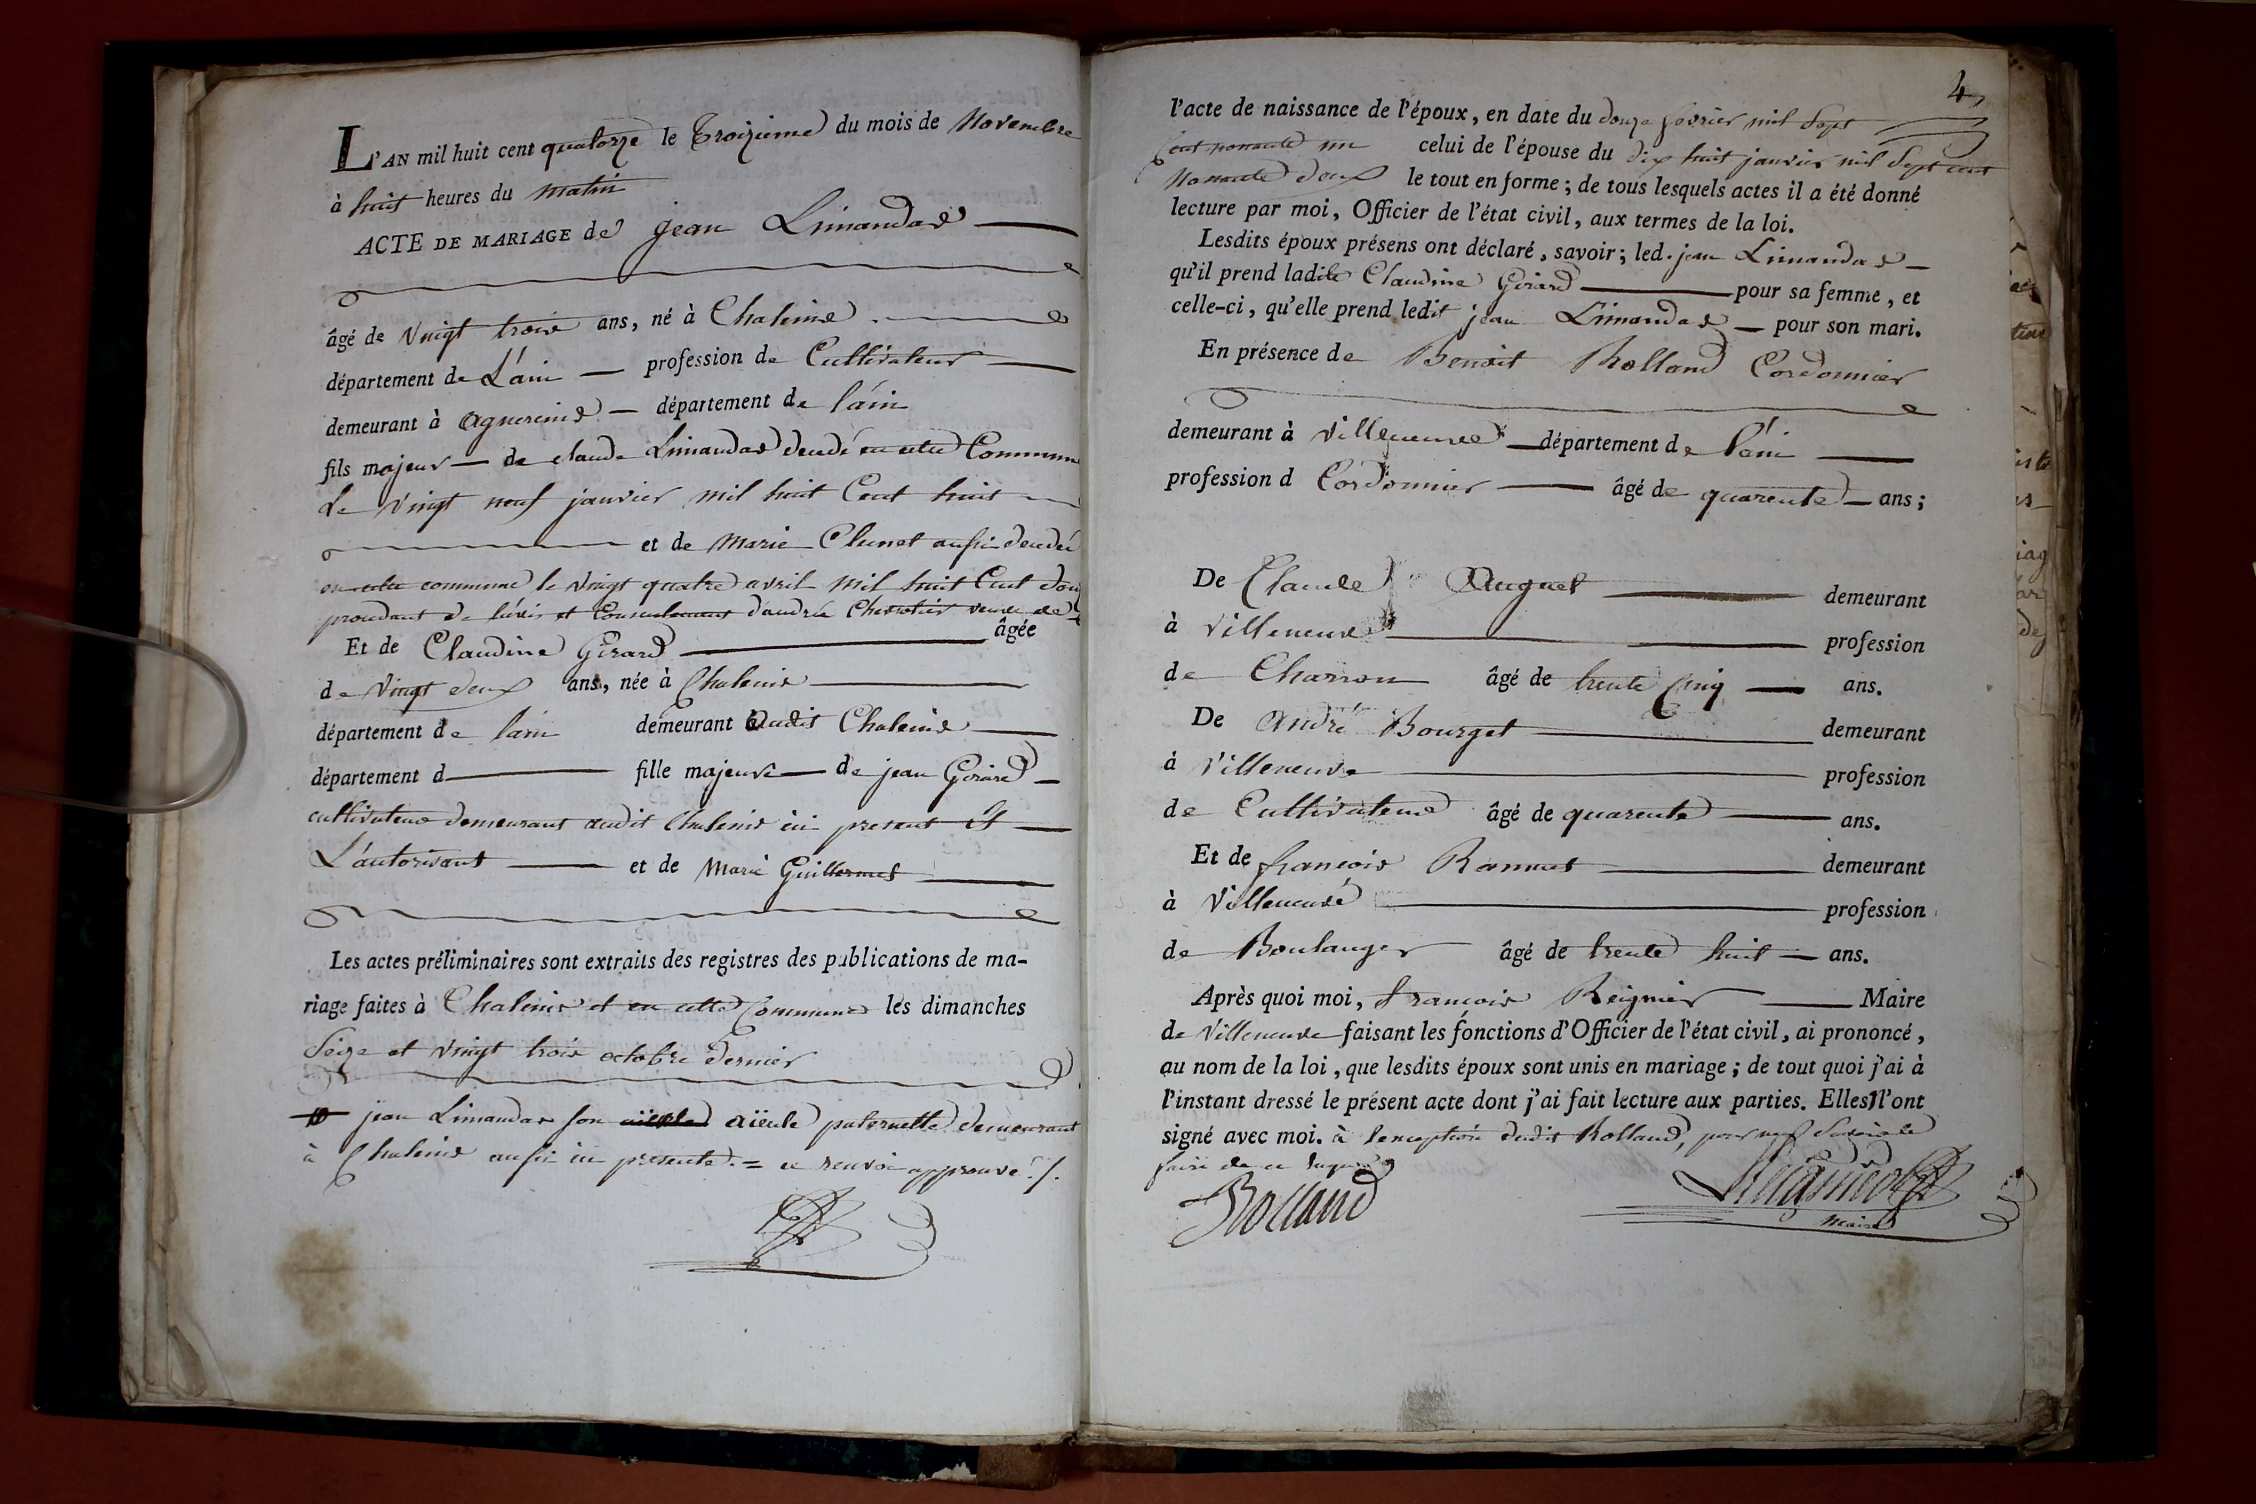 L'AN mil huit cent quatorze le Troizieme du mois de Novembre
à huit heures du matin
ACTE DE MARIAGE de jean Limandas
âgé de vingt trois ans, né à Chaleins
département de L'ain profession de Cultivateur
demeurant à agnereins département de l'ain
fils majeur de claude Limandas decedé en cette Commune
Le vingt neuf janvier mil huit Cent huit
et de Marie Clunet aussi decedée
en cette commune le vingt quatre avril mil huit Cent
procedant de l'avis et Consentement veuve de
Et de Claudine Girard âgée
de vingt deux ans, née à Chaleins
département de l'ain demeurant audit Chaleins
département d fille majeure de jean Girard
cultivateur demeurant audit Chaleins ici present et
L'autorisant et de Marie Guillermet
Les actes préliminaires sont extraits des registres des publications de ma-
riage faites à Chaleins et en cette Commune les dimanches
Seize et vingt trois octobre dernier
jean Limandas son aïeule paternelle demeurant
à Chaleins aussi ici presente = ce renvoi approuvé ./.
4
l'acte de naissance de l'époux, en date du douze fevrier mil Sept
Cent nonante un celui de l'épouse du dix huit janvier mil Sept cent
Nonante deux le tout en forme ; de tous lesquels actes il a été donné
lecture par moi, Officier de l'état civil, aux termes de la loi.
Lesdits époux présens ont déclaré, savoir ; led. jean Limandas
qu'il prend ladite Claudine Girard pour sa femme, et
celle-ci, qu'elle prend ledit jean Limandas pour son mari.
En présence de Benoit Rolland Cordonnier
demeurant à villeneuve département de l'ain
profession d Cordonnier âgé de quarente ans ;
De Claude Auguet demeurant
à villeneuve profession
de Charron âgé de trente Cinq ans.
De andré Bourget demeurant
à villeneuve profession
de Cultivateur âgé de quarente ans.
Et de francois demeurant
à Villeneuve profession
de Boulanger âgé de trente huit ans.
Après quoi moi, francois Reignier Maire
de Villeneuve faisant les fonctions d'Officier de l'état civil, ai prononcé,
au nom de la loi, que lesdits époux sont unis en mariage ; de tout quoi j'ai à
l'instant dressé le présent acte dont j'ai fait lecture aux parties. Elles l'ont
signé avec moi. à l'exception dudit Rolland, pour ne Savoir le
faire de ce requis
Rolland
Maire